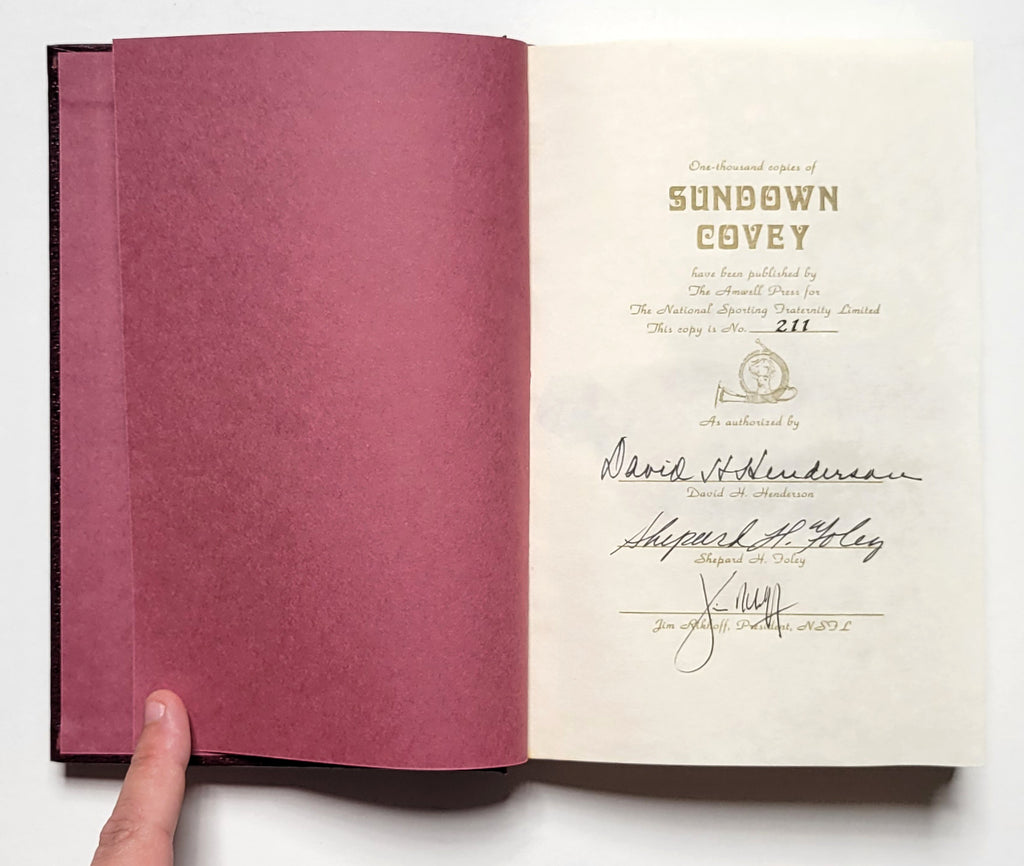 One-thousand copies of
SUNDOWN
COVEY
have been published by
The Amwell Press for
The National Sporting Fraternity Limited
This copy is No. 211
As authorized by
David H Henderson
David H. Henderson
Shepard H. Foley
Shepard H. Foley
Jim
Jim Rikhoff, President, NSFL